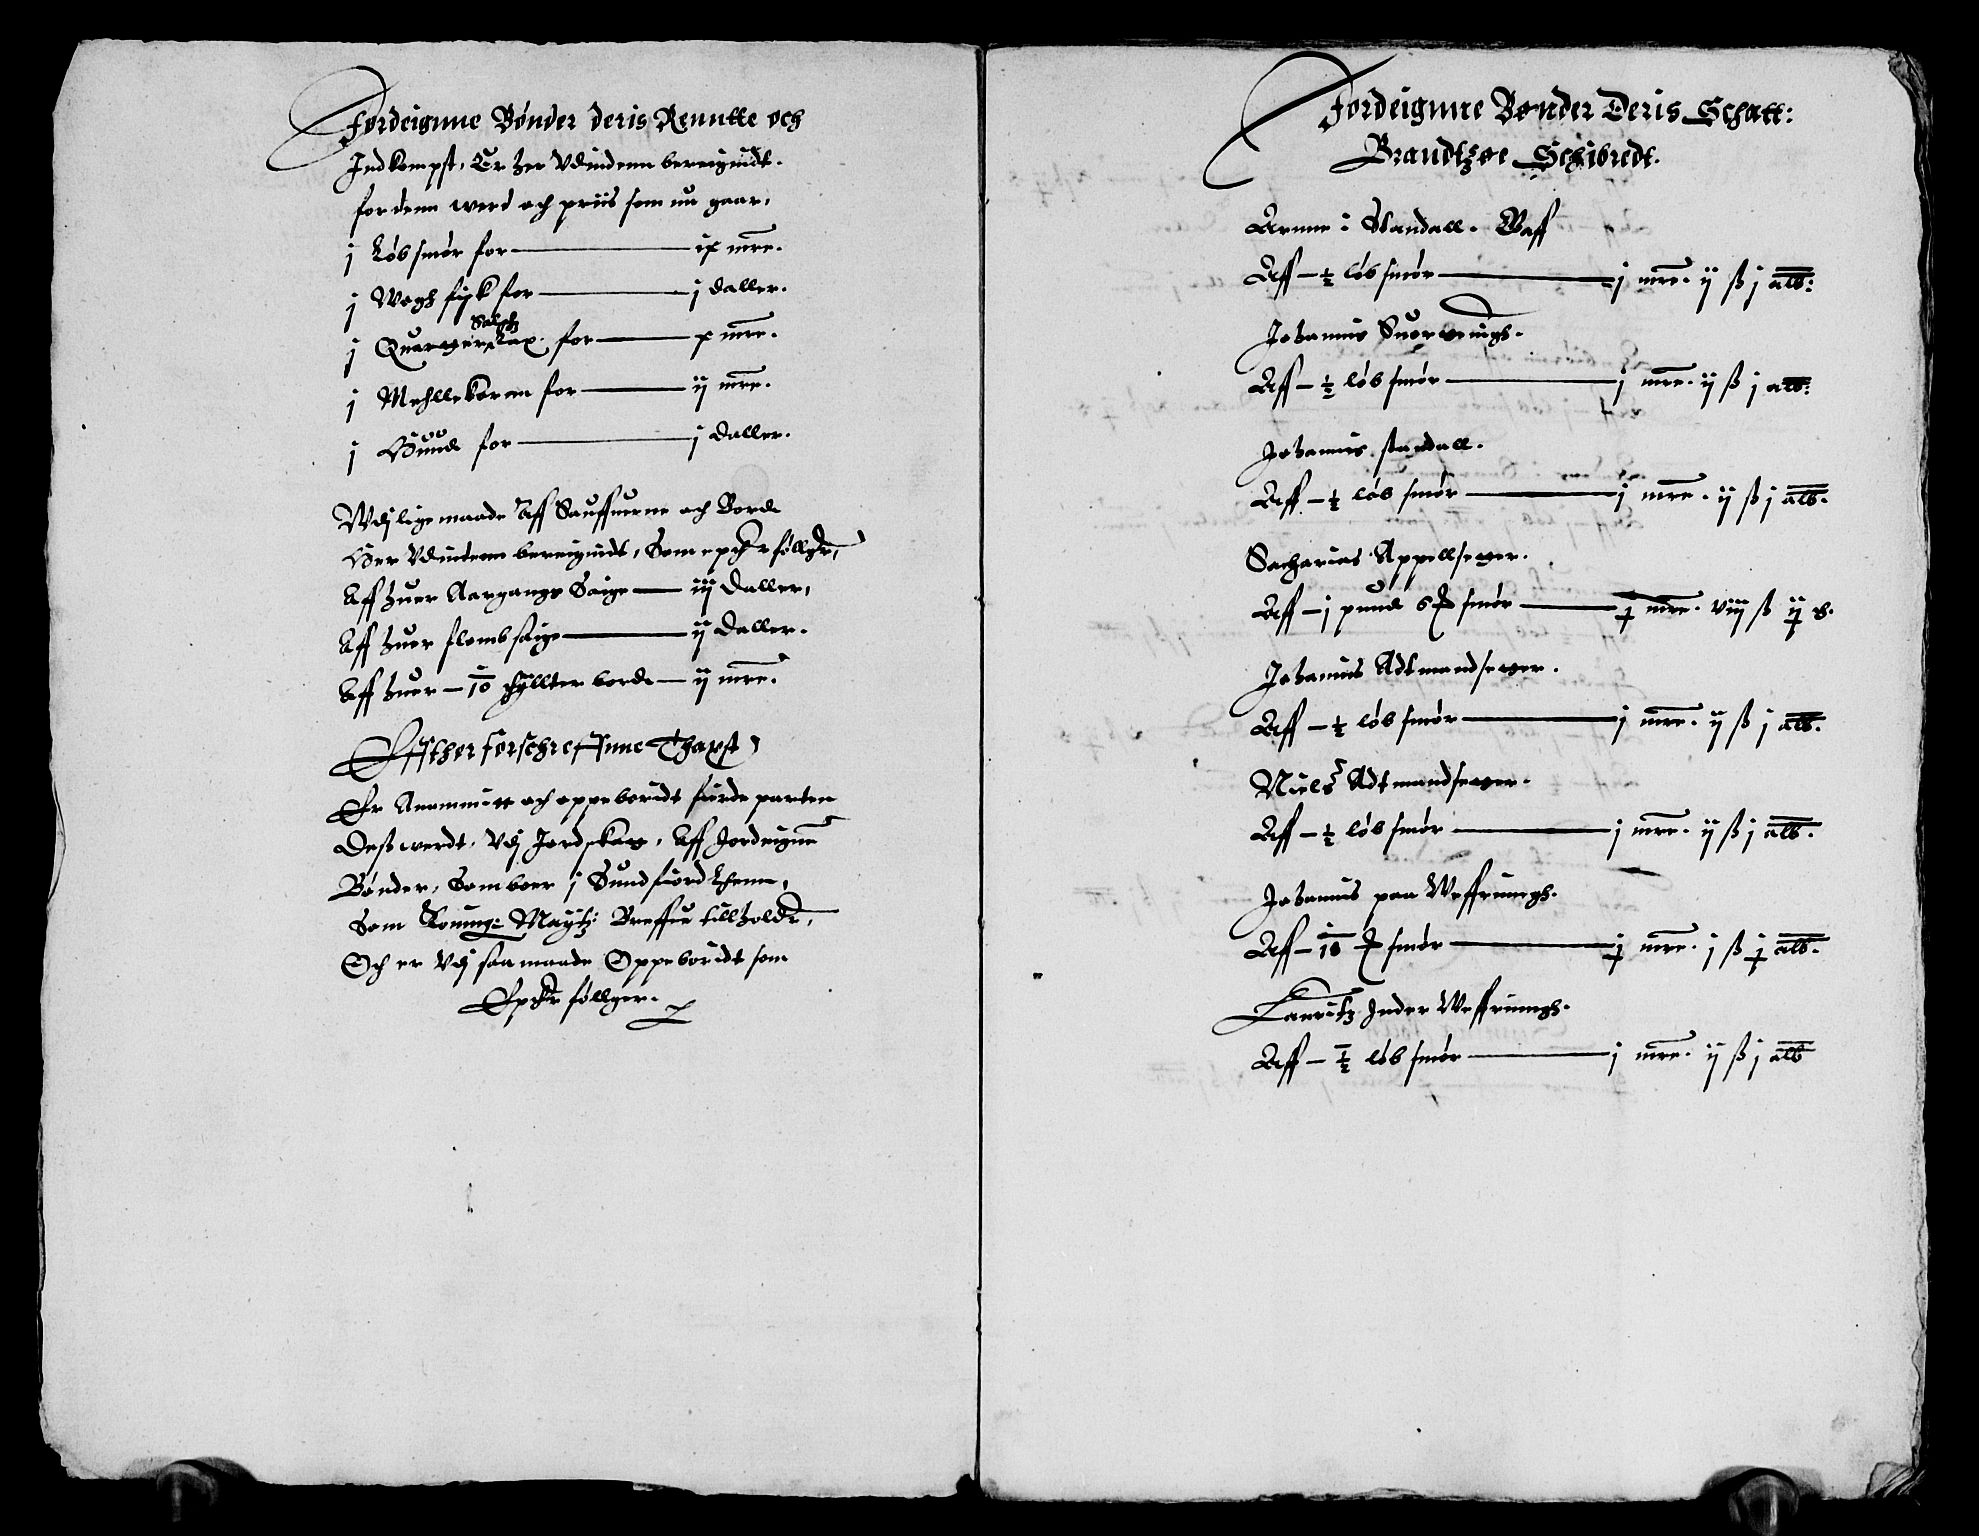 Jordeignne Bønder deris Renntte och
Indkompst, Er her Vdindenn bereignidt.
for denn werd och priis som nu gaar,
j Løb smør for — ix mrc.
j Wogh fisk for — j daller.
j Quarter Saltz Lax for — x mrc.
j Mehllekornn for — ij mrc.
j Huud for — j daller.
Wdj lige maade Aff Sauffuerne och Borde
Her Vdindenn bereignidt, Som epther føllger,
Aff huer Aargangs Saige — iij Daller,
Aff huer flomb saige — ij Daller.
Aff huer — 10 thyllter borde — ij mrc.
Effther forschreffnne Thaxst
Er Anammit och oppeboridt fierde parten
Dess werdt, Vdj Jordskat, Aff Jordeignne
Bønder, Som boer j Sundfiord Lhenn,
Som Koning: Maytz: Breffue till holdr,
Och er Vdj saa maade Oppeboridt som
Epthr føllger.
Jordeignne Bønder Deris Schatt:
Brandtzøe Schibredt.
Arnne i Standall. Gaff
Aff — ½ løb smør — j mrc. ij ß j alb:
Johannis Suorweingh.
Aff — ½ løb smør — j mrc. ij ß j alb:
Johannis standall.
Aff — ½ løb smør — j mrc. ij ß j alb.
Sacharias Appellseter.
Aff — j pund 6 smør — mrc. viij ß
Johannis Adtmandseter.
Aff — ½ løb smør — j mrc. ij ß j alb.
Niels Adtmandseter.
Aff — ½ løb smør — j mrc. ij ß j alb.
Johannis paa Weffringh.
Aff — 10 smør — mrc. j ß alb.
Lauritz Inder Weffringh.
Aff — ½ løb smør — j mrc. ij ß j alb